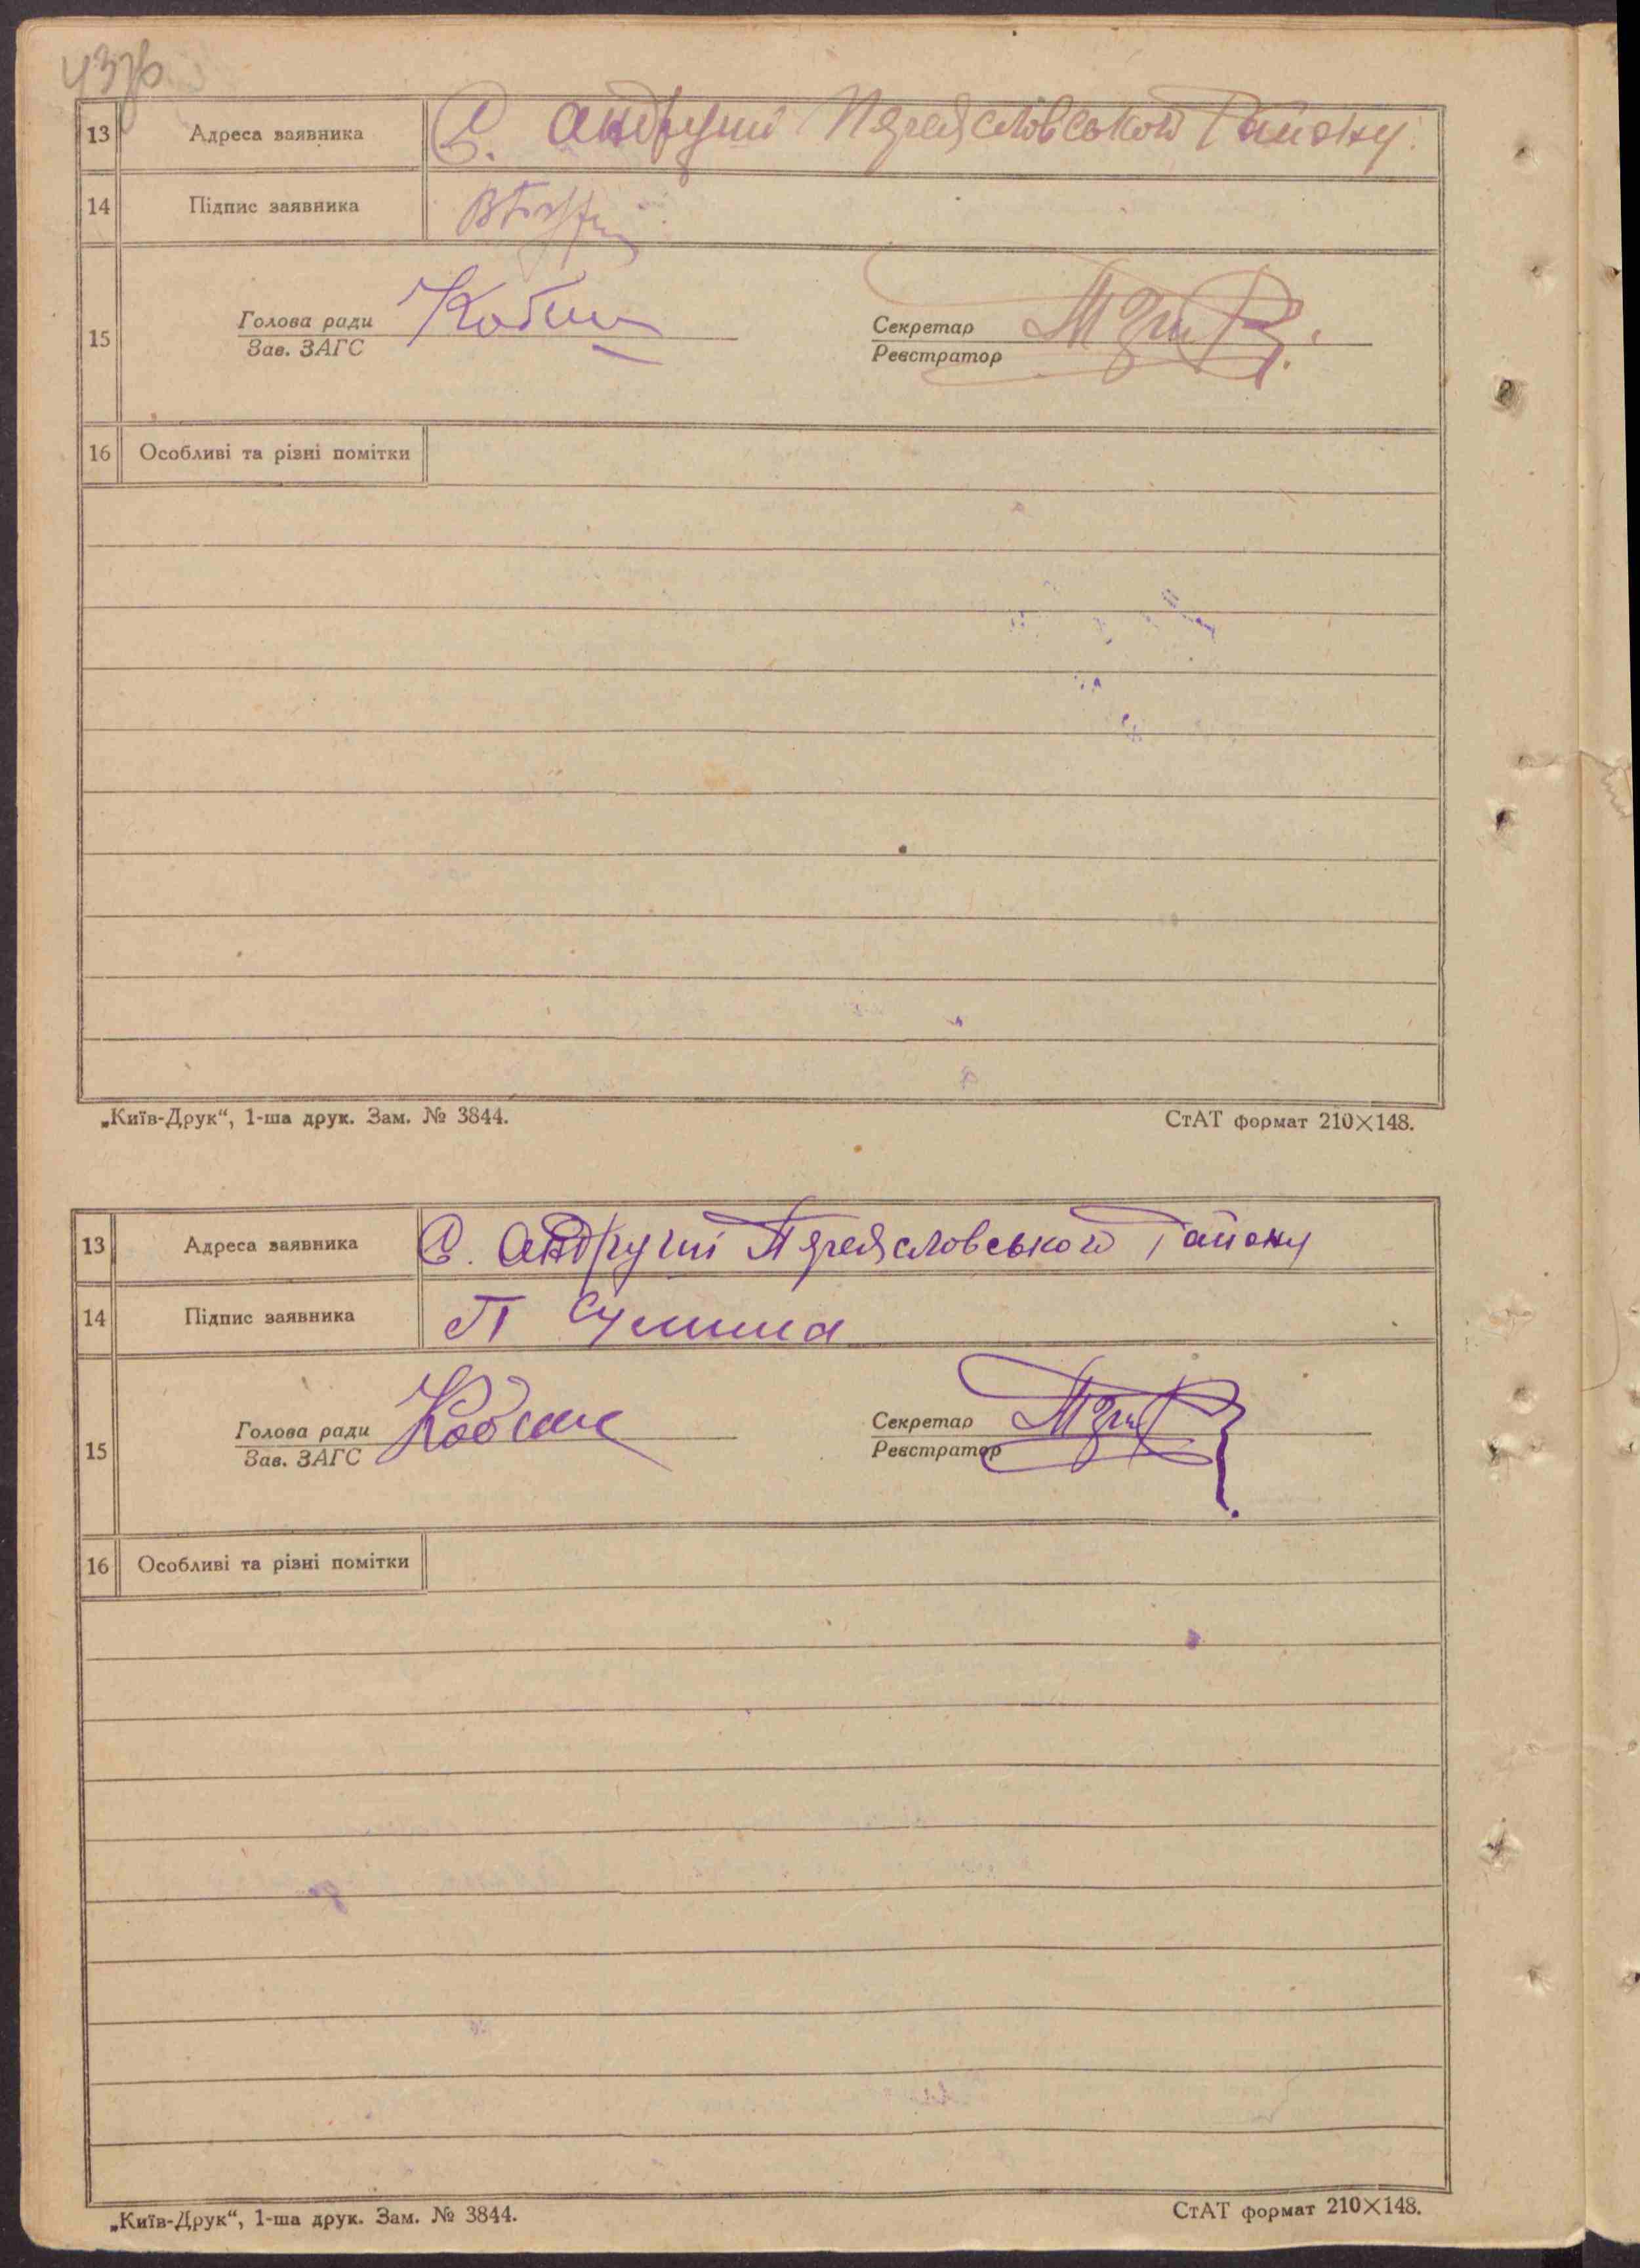 13 Адреса заявника С. Андруші Переясловського Району.
14 Підпис заявника
15 Голова ради Секретар
Зав. ЗАГС Реєстратор
16 Особливі та різні помітки
„Київ-Друк“, 1-ша друк. Зам. № 3844. СтАТ формат 210×148.
13 Адреса заявника С. Андруші Переясловського Району
14 Підпис заявника П
15 Голова ради Секретар
Зав. ЗАГС Реєстратор
16 Особливі та різні помітки
„Київ-Друк“, 1-ша друк. Зам. № 3844. СтАТ формат 210×148.